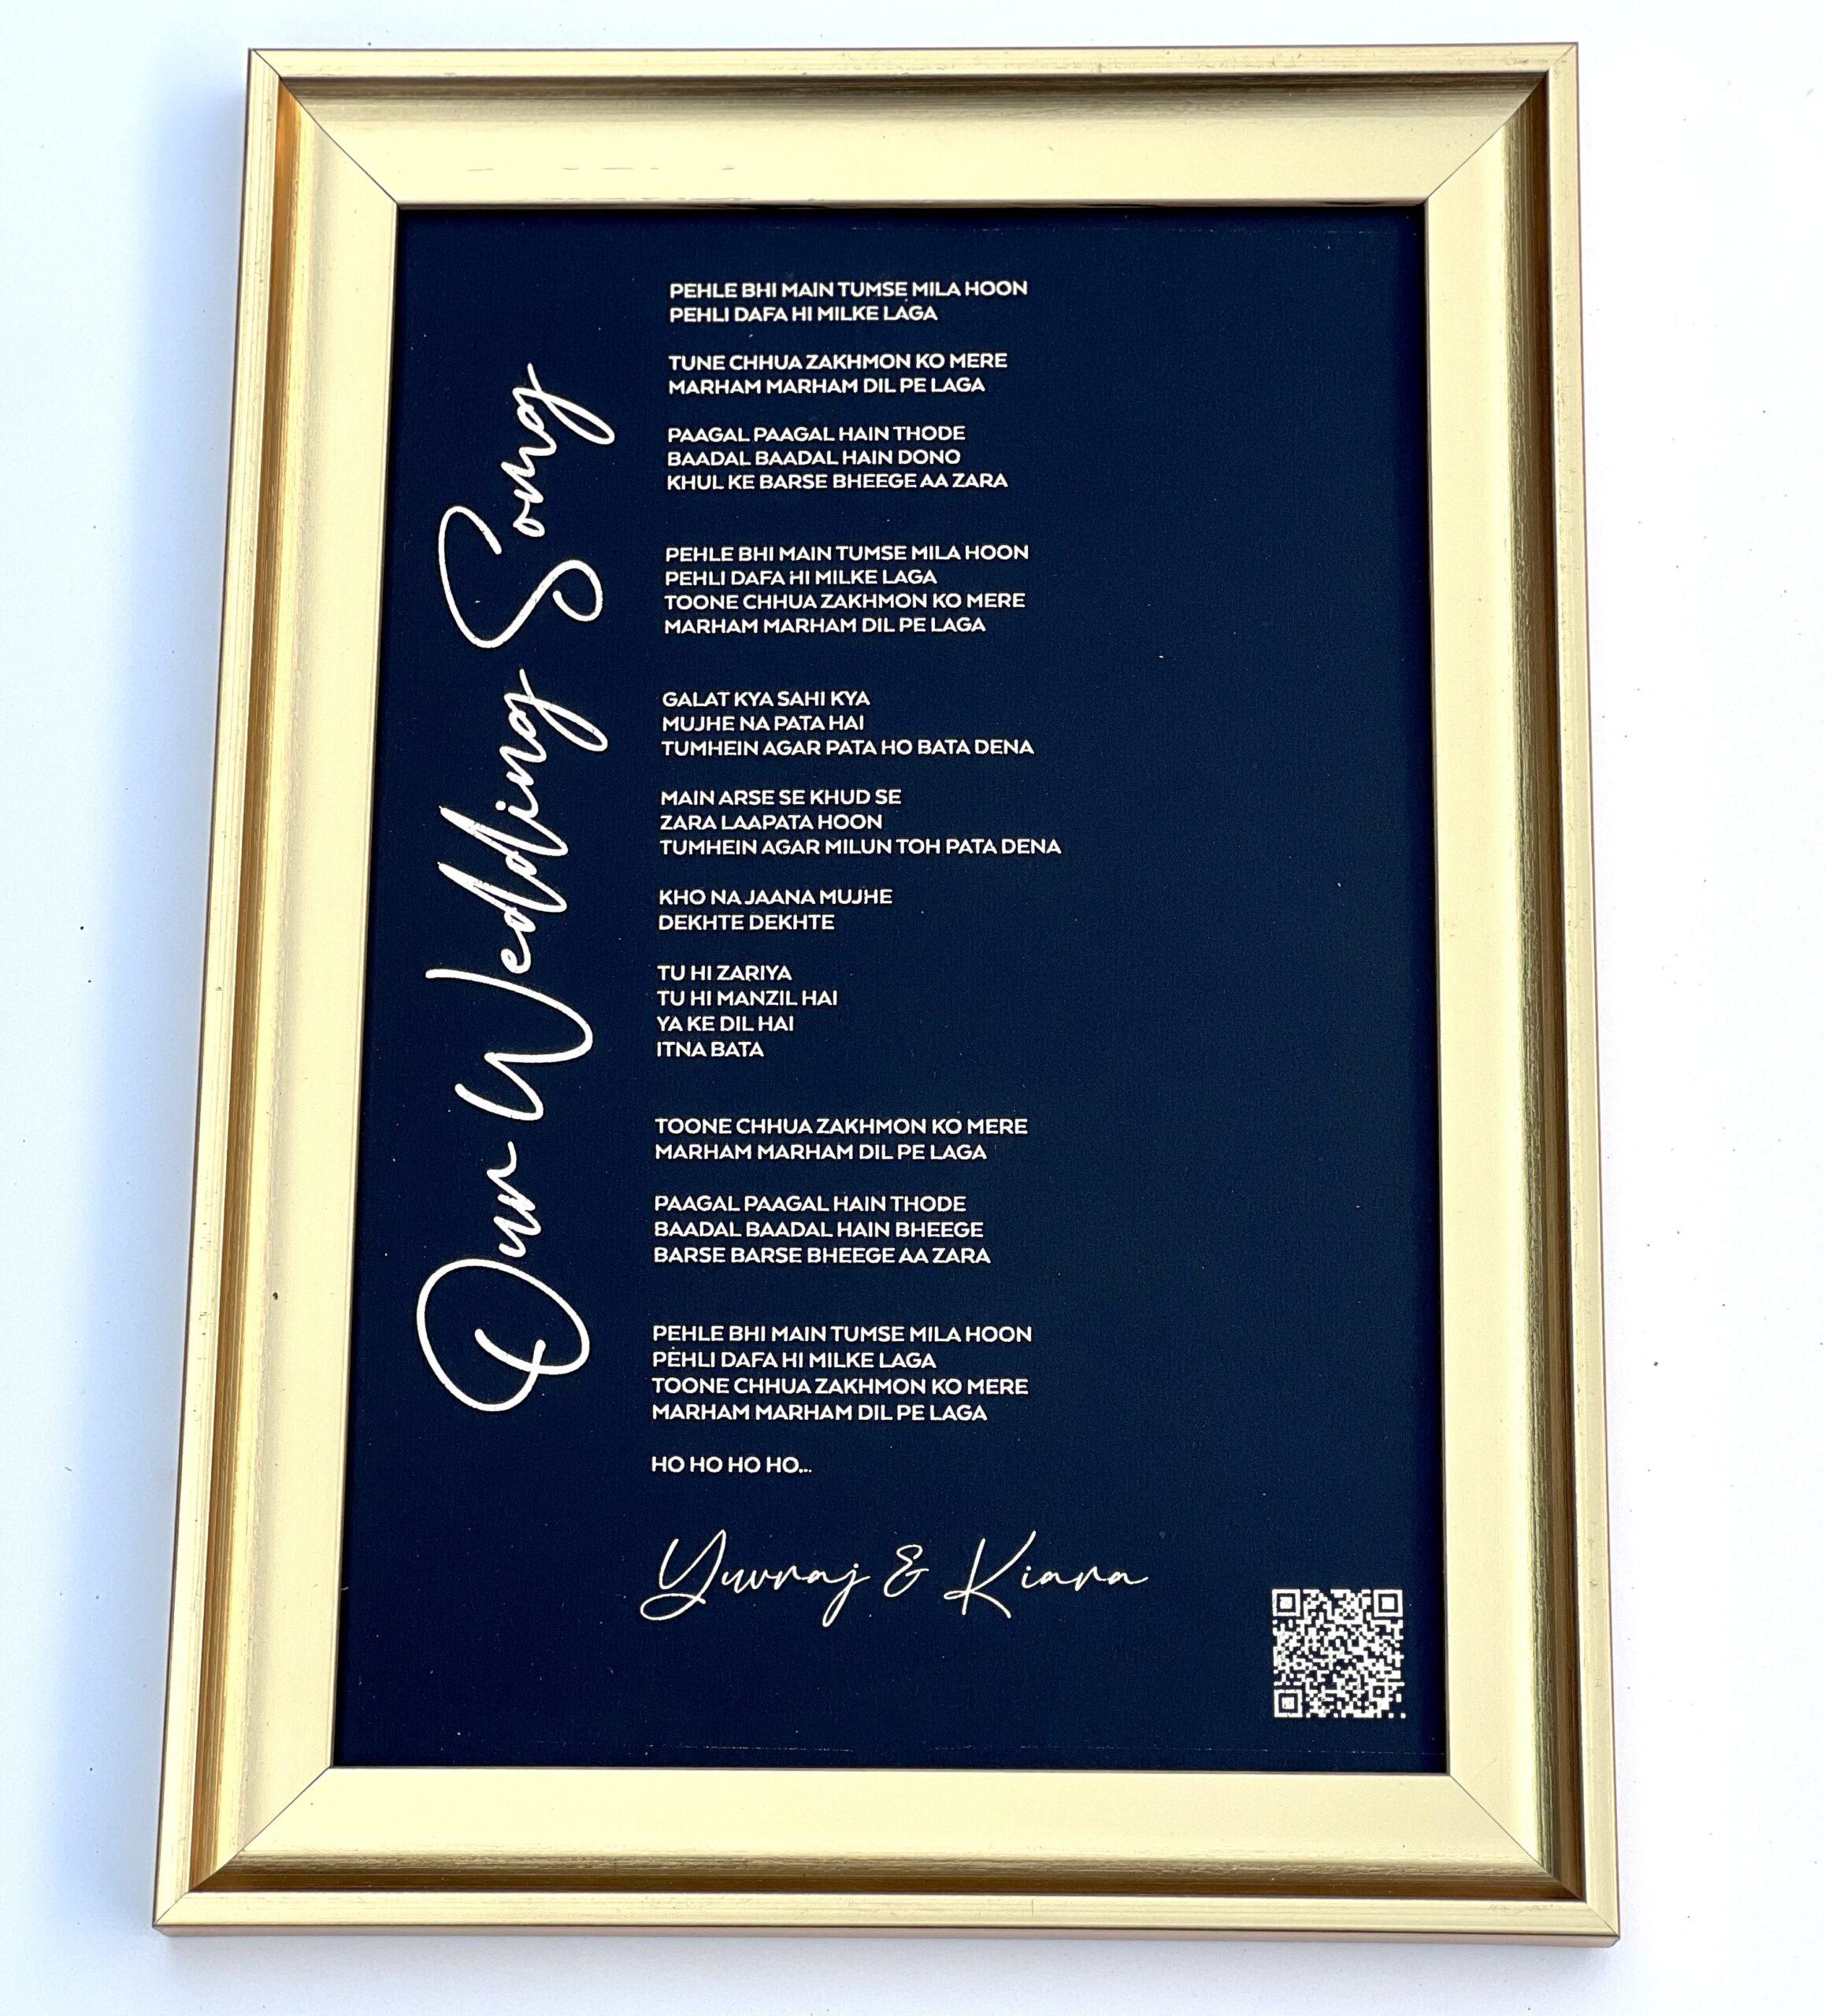 Our Wedding Song
PEHLE BHI MAIN TUMSE MILA HOON
PEHLI DAFA HI MILKE LAGA
TUNE CHHUA ZAKHMON KO MERE
MARHAM MARHAM DIL PE LAGA
PAAGAL PAAGAL HAIN THODE
BAADAL BAADAL HAIN DONO
KHUL KE BARSE BHEEGE AA ZARA
PEHLE BHI MAIN TUMSE MILA HOON
PEHLI DAFA HI MILKE LAGA
TOONE CHHUA ZAKHMON KO MERE
MARHAM MARHAM DIL PE LAGA
GALAT KYA SAHI KYA
MUJHE NA PATA HAI
TUMHEIN AGAR PATA HO BATA DENA
MAIN ARSE SE KHUD SE
ZARA LAAPATA HOON
TUMHEIN AGAR MILUN TOH PATA DENA
KHO NA JAANA MUJHE
DEKHTE DEKHTE
TU HI ZARIYA
TU HI MANZIL HAI
YA KE DIL HAI
ITNA BATA
TOONE CHHUA ZAKHMON KO MERE
MARHAM MARHAM DIL PE LAGA
PAAGAL PAAGAL HAIN THODE
BAADAL BAADAL HAIN BHEEGE
BARSE BARSE BHEEGE AA ZARA
PEHLE BHI MAIN TUMSE MILA HOON
PEHLI DAFA HI MILKE LAGA
TOONE CHHUA ZAKHMON KO MERE
MARHAM MARHAM DIL PE LAGA
HO HO HO HO...
Yuvraj & Kiara